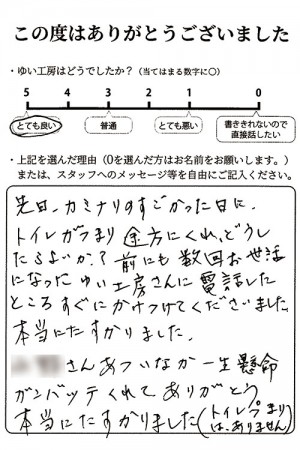 この度はありがとうございました
・ゆい工房はどうでしたか？（当てはまる数字に○）
5 4 3 2 1 0
とても良い 普通 とても悪い 書ききれないので直接話したい
・上記を選んだ理由（0を選んだ方はお名前をお願いします。）
または、スタッフへのメッセージ等を自由にご記入ください。
先日、カミナリのすごかった日に、
トイレがつまり途方にくれ、どうし
たらよいか？前にも数回お世話
になったゆい工房さんに電話した
ところすぐにかけつけてくださいました。
本当にたすかりました。
さんあついなか一生懸命
ガンバッテくれてありがとう
本当にたすかりました（トイレつまり
は、ありません）